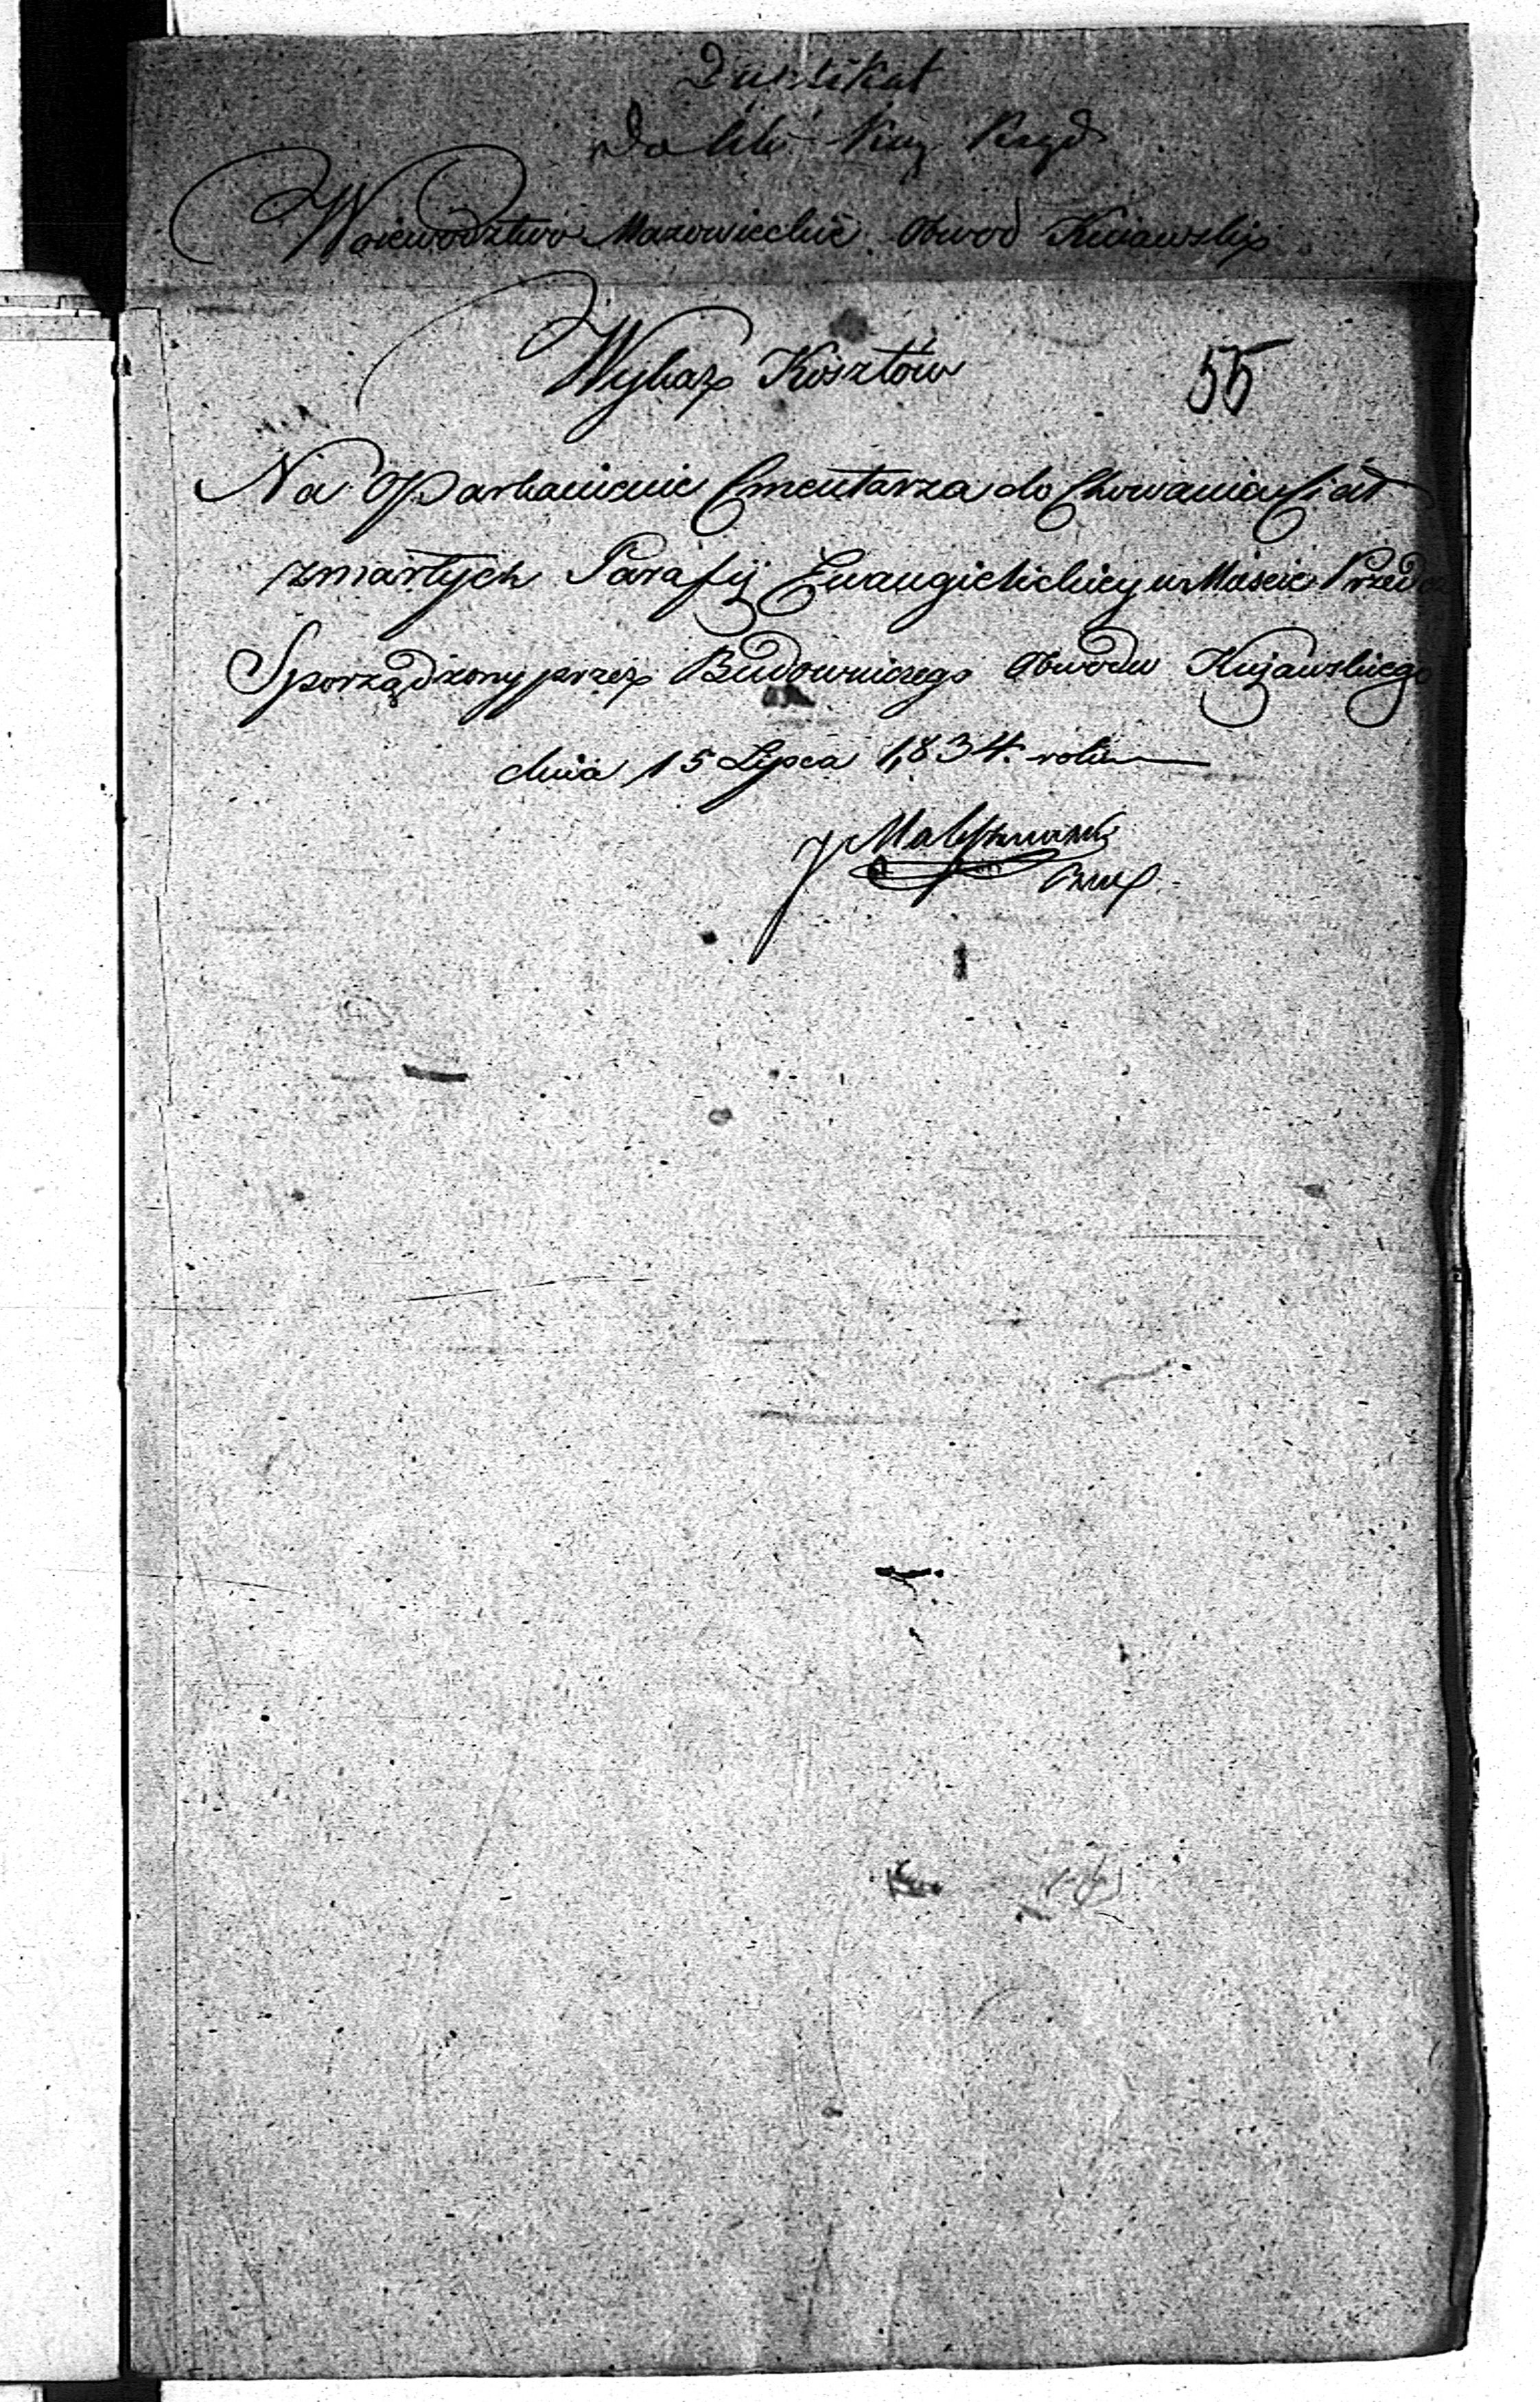 Duplikat
Do Akt Kuy Rzyd
Woiewodztwo Mazowieckie Obwod Kuiawski
Wykaz Kosztów
55
Na Oparkanienie Cmentarza do Chowania Ciał
zmarłych Parafij Ewangielickiey w Mieście Przede
Sporządzony przez Budowniczego Obwodu Kujawskiego
dnia 15 Lipca 1834. roku